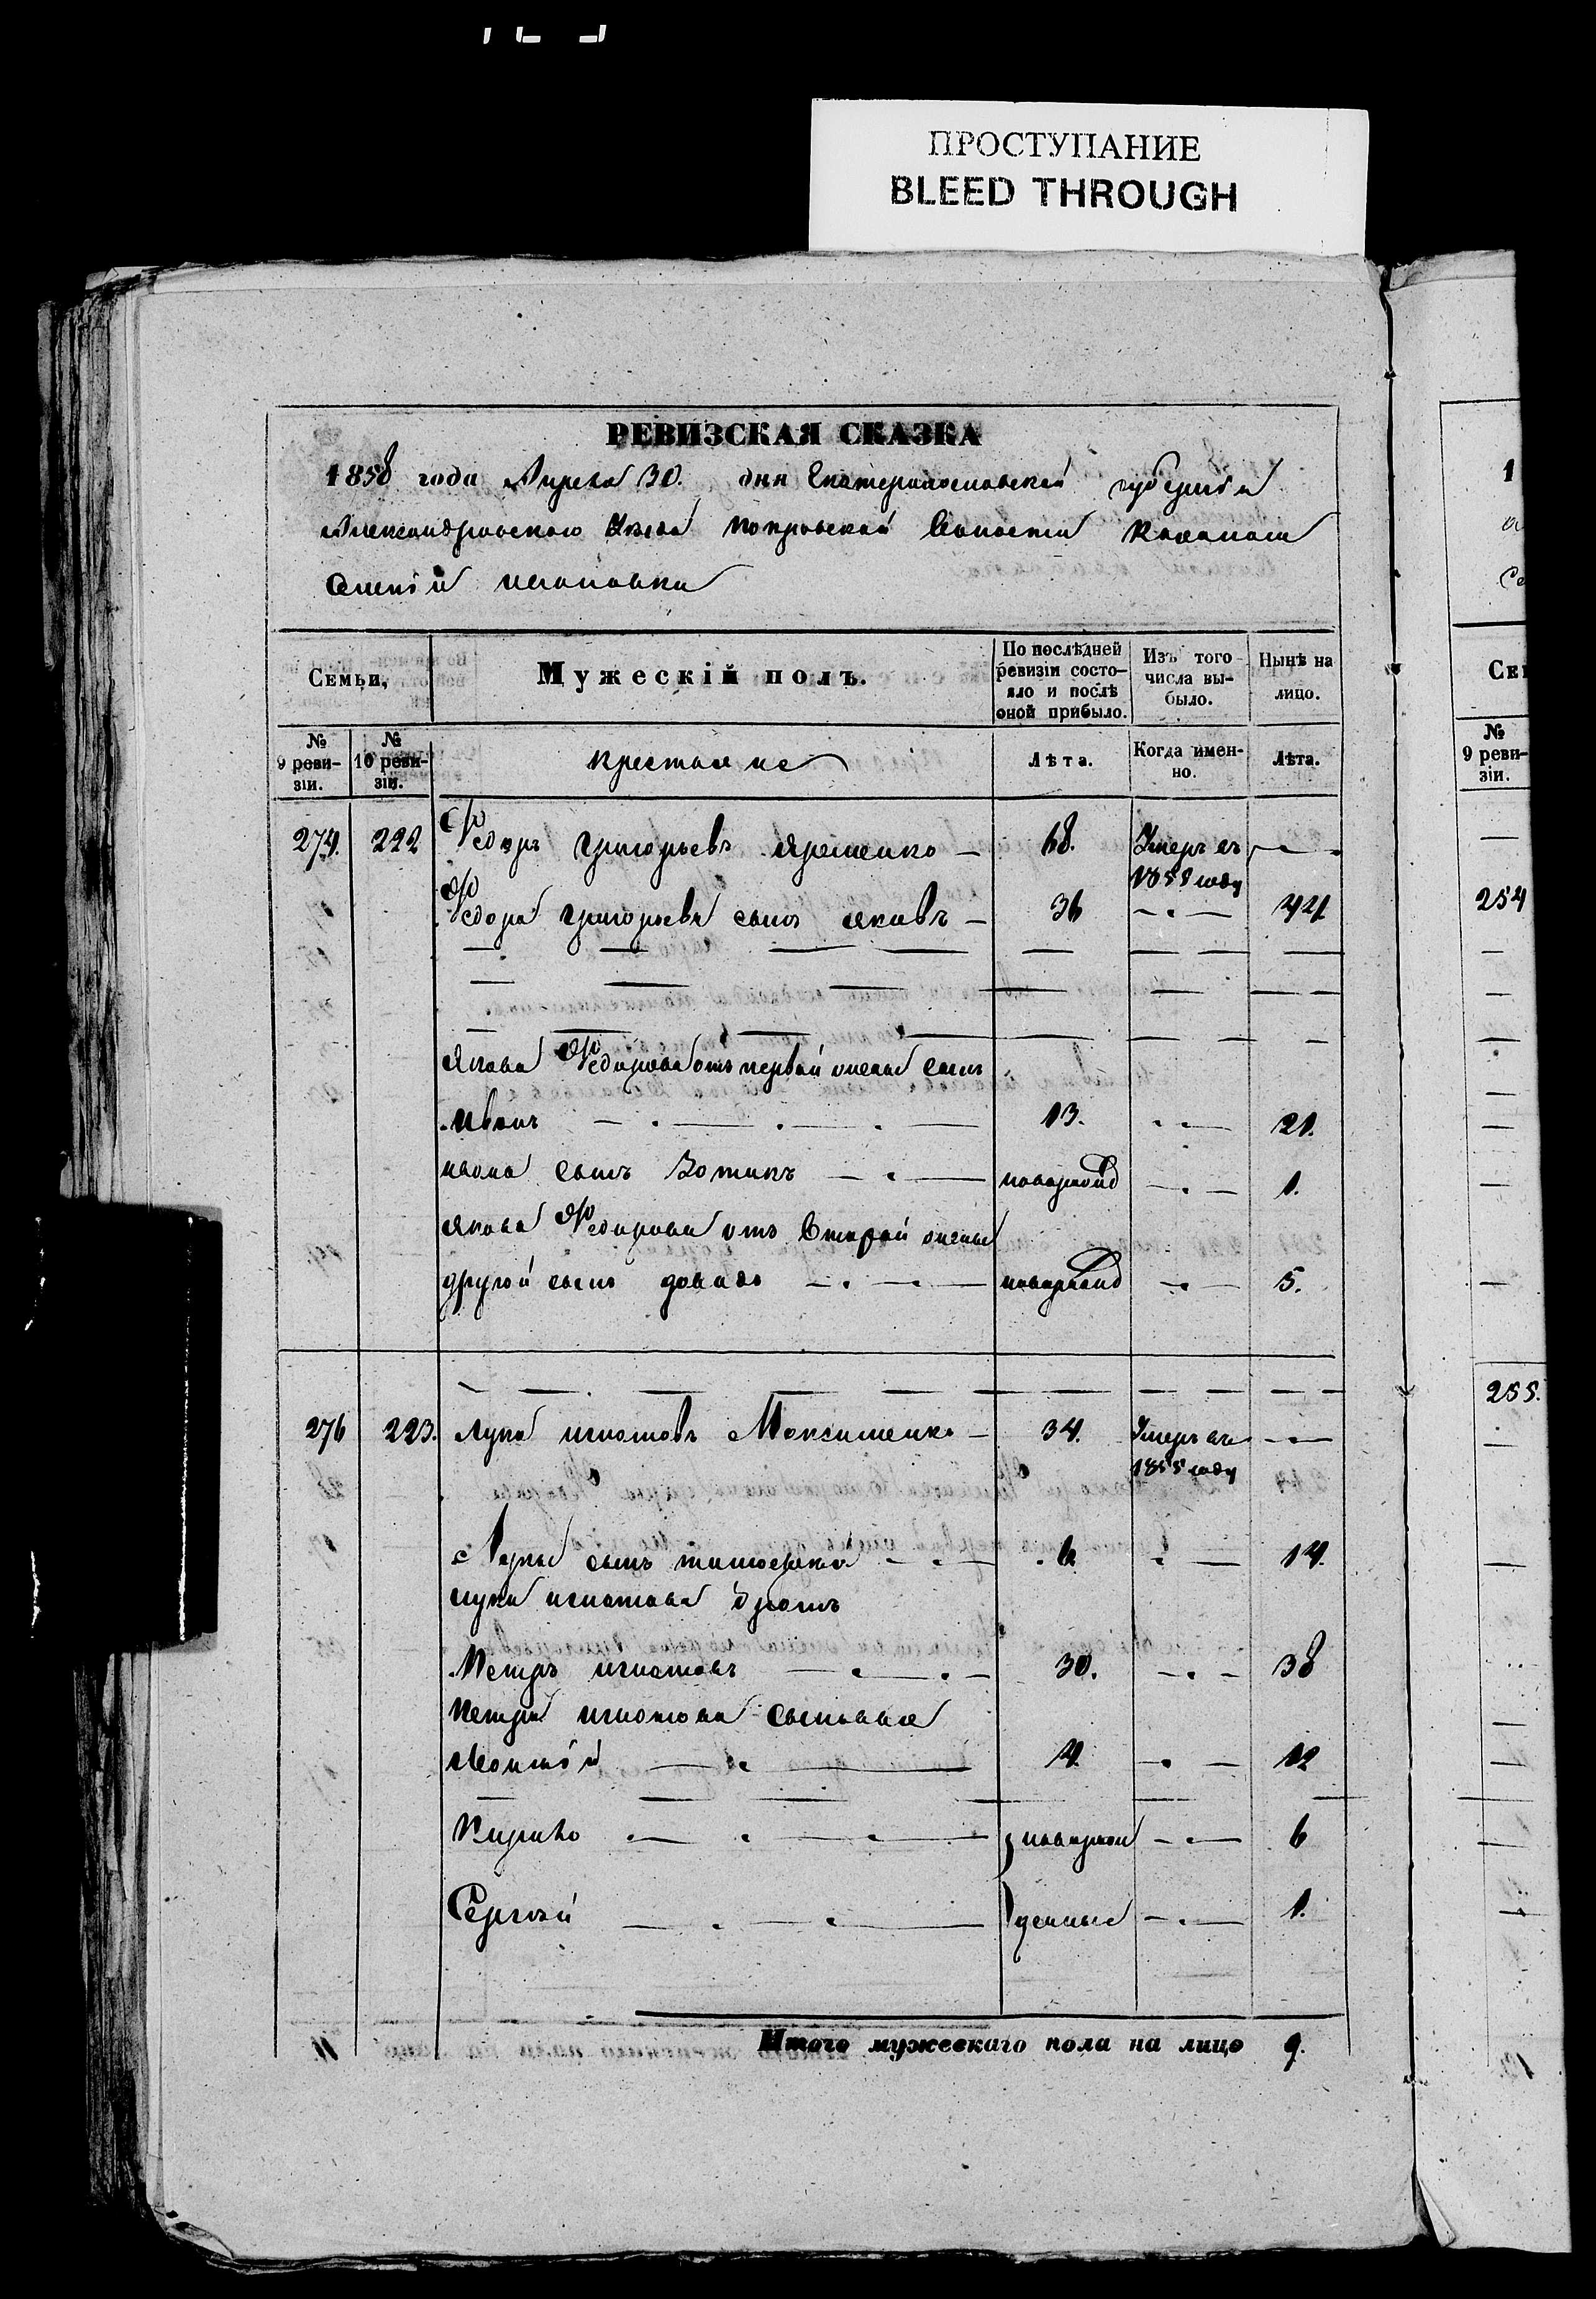 ПРОСТУПАНИЕ
BLEED THROUGH
РЕВИЗСКАЯ СКАЗКА
1858 года Апреля 30. дня Екатеринославской губернии
Александровского Уезда Покровской Волости Казенаго
Селенія
Семьи, Мужескій полъ. По послѣдней ревизіи состояло и послѣ оной прибыло. Изъ того числа выбыло. Нынѣ на лицо.
№ 9 ревизіи. № 10 ревизіи. крестьяне Лѣта. Когда именно. Лѣта.
274. 222 Федоръ Григорьевъ Ярешенко — 68. Умеръ въ 1855 году —
Федора Григорьева сынъ Яковъ — 36 — 44
Якова Федорова отъ первой жены сынъ
Иванъ — 13. — 21.
Ивана сынъ Зотикъ — новорожд — 1.
Якова Федорова отъ второй жены
другой сынъ — новорожд — 5.
276 223. Лука Игнатовъ Максименко — 34. Умеръ въ 1855 году —
Луки сынъ Тимофей — 6 — 14.
Луки Игнатова братъ
Петръ Игнатовъ — 30. — 38
Петра Игнатова сыновья
Леонтій — 4 — 12
Кирило — новорож — 6
Сергѣй — денные — 1.
Итого мужескаго пола на лицо 9.
1
Сем
№ 9 ревизіи.
254
255.